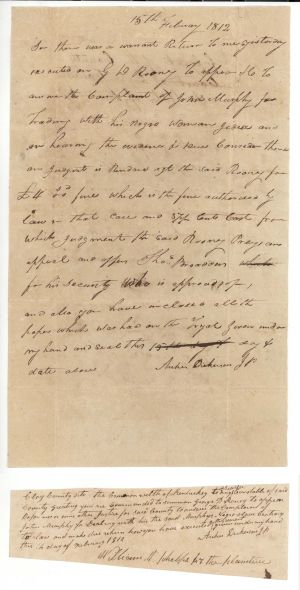 15th February 1812
Sir there was a warrant Return to me yesterday
executed on G D Rooney to appear &C to
answer the Complaint of John Murphy for
Trading with his Negro Woman and
on hearing the evidence
Judgment is Rendered agt the said Rooney for
£4 fines which is the fine authorised by
law in that case and 37½ Cents Cost from
which Judgment the said Rooney Prays an
appeal and offers Thos. Broaddus
for his security who is approved of,
and also you have inclosed all the
papers which was had on the Tryal Given under
my hand and seal this day &
date above Archer Dickerson JP
Clay County Sct. the Commonwealth of Kentucky to any Constable of said
County Greeting you are commanded to summon George D Rooney to appear
before me or some other Justice for said County to answer the Complaint of
John Murphy for Dealing with his the said Murphys Negro Contrary
to law and make due return how you have executed given under my hand
this 14 day of February 1812
Archer Dickerson JP
William M for the plaintive